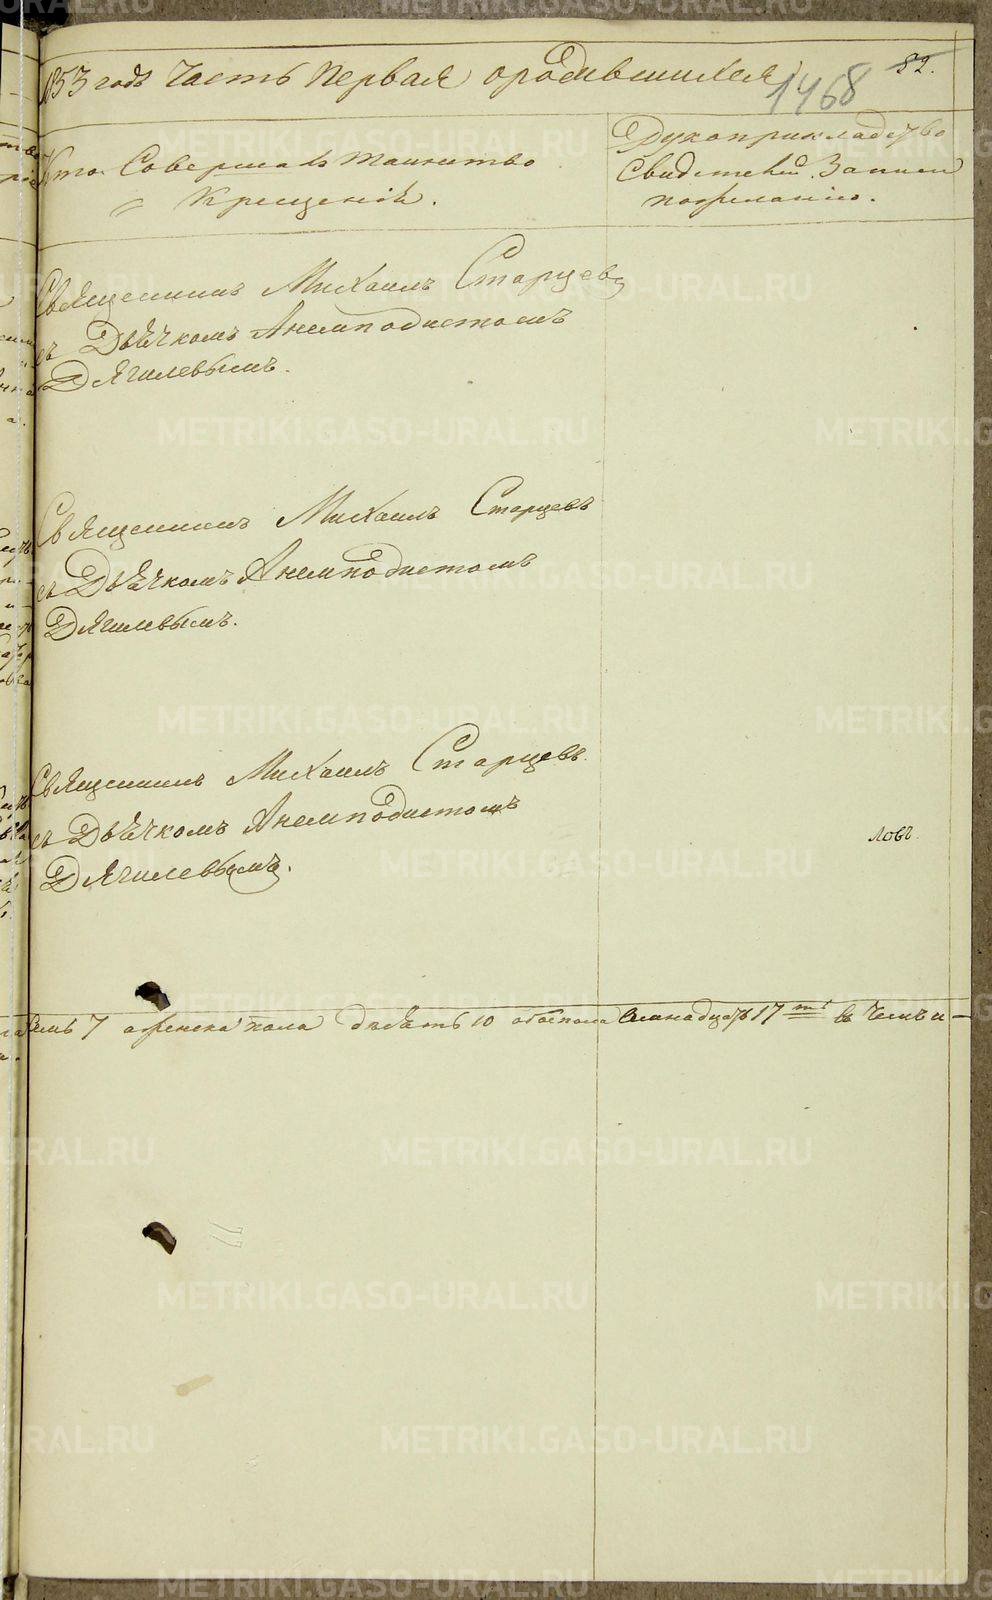 1853 годъ Часть Первая ородившихся
1468
82.
Кто Совершалъ таинство
Крещенія.
Рукоприкладство
Свидетелей Записи
пожеланію.
Священникъ Михаилъ Старцевъ
съ Дьячкомъ Анемподистомъ
Дягилевымъ.
Священникъ Михаилъ Старцевъ
съ Дьячкомъ Анемподистомъ
Дягилевымъ.
Священникъ Михаилъ Старцевъ
съ Дьячкомъ Анемподистомъ
Дягилевымъ.
ловъ.
семь 7 аженска пола десять 10 обоепола Семнадцать 17 въ чемъ и
METRIKI.GASO-URAL.RU